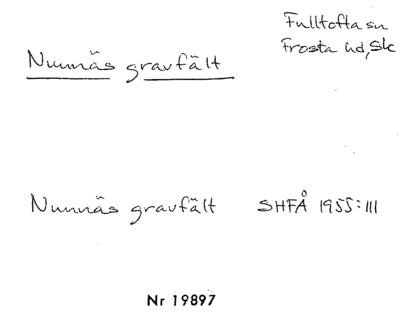 Fulltofta sn
Frosta hd, Sk
Nunnäs gravfält
Nunnäs gravfält SHFÅ 1955:III
Nr 19897